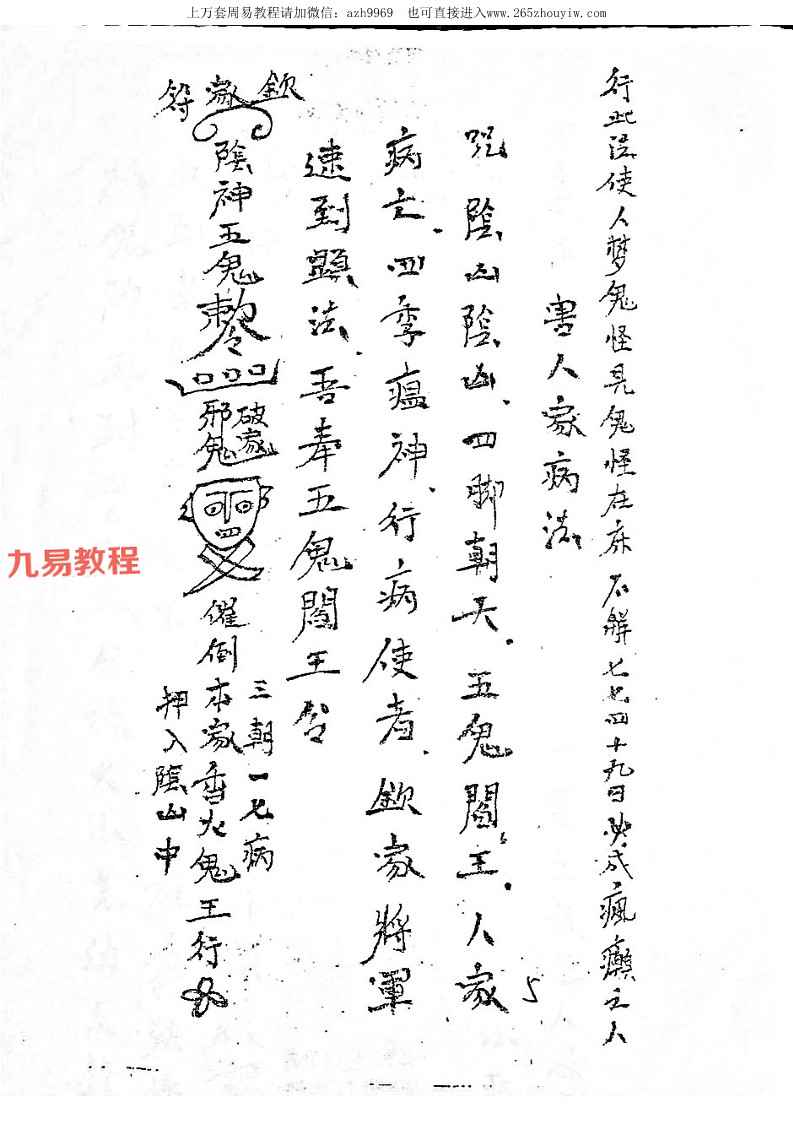 上万套周易教程请加微信：azh9969　也可直接进入www.265zhouyiw.com
行此法使人梦鬼怪見鬼怪在床不解七七四十九日必成瘋癲之人
害人家病法
咒陰山陰山、四脚朝天.五鬼閻王.人家
病亡.四季瘟神.行病使者.欽家將軍
速到顕法.吾奉五鬼閻王令
欽家符
陰神五鬼敕令
口口口
破家
邪鬼
催倒本家香火鬼王行
三朝一七病
押入陰山中
5
九易教程